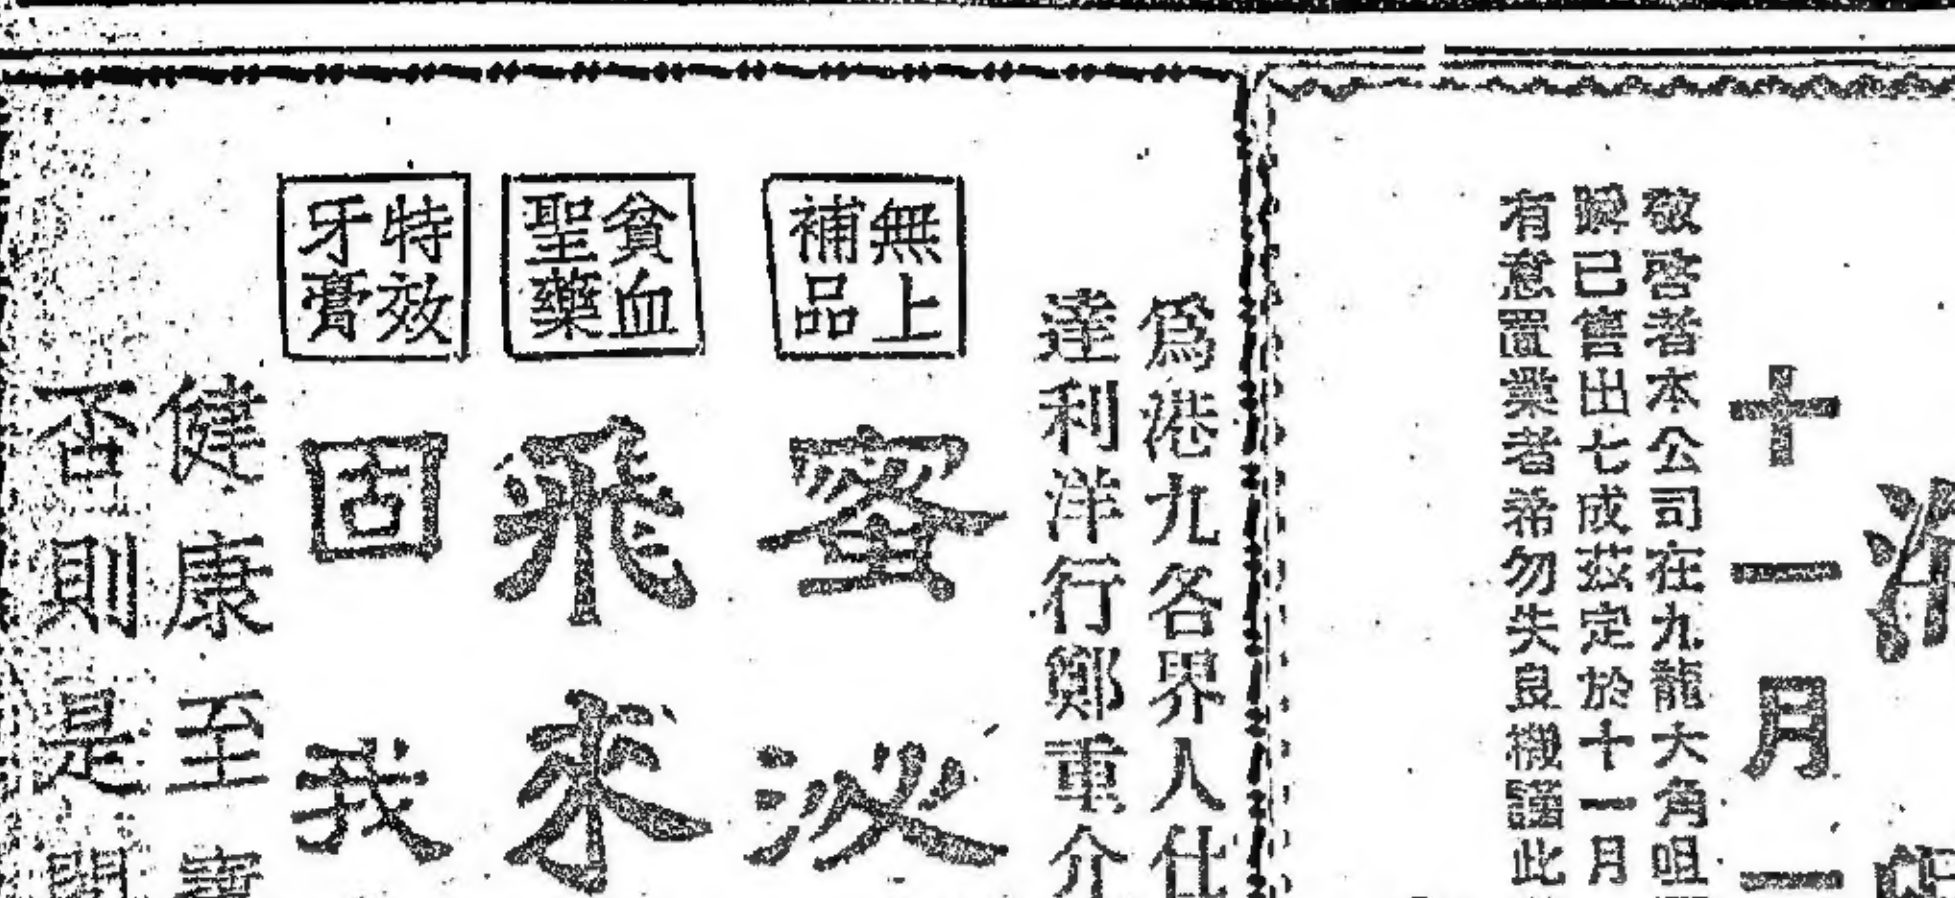 十一月
敬啓者本公司在九龍大角咀
已售出七成茲定於十一月
有意置業者希勿失良機謹此
爲港九各界人仕
達利洋行鄭重介
無上
補品
蜜泌
貧血
聖藥
飛來
特效
牙膏
固我
健康至
否則是